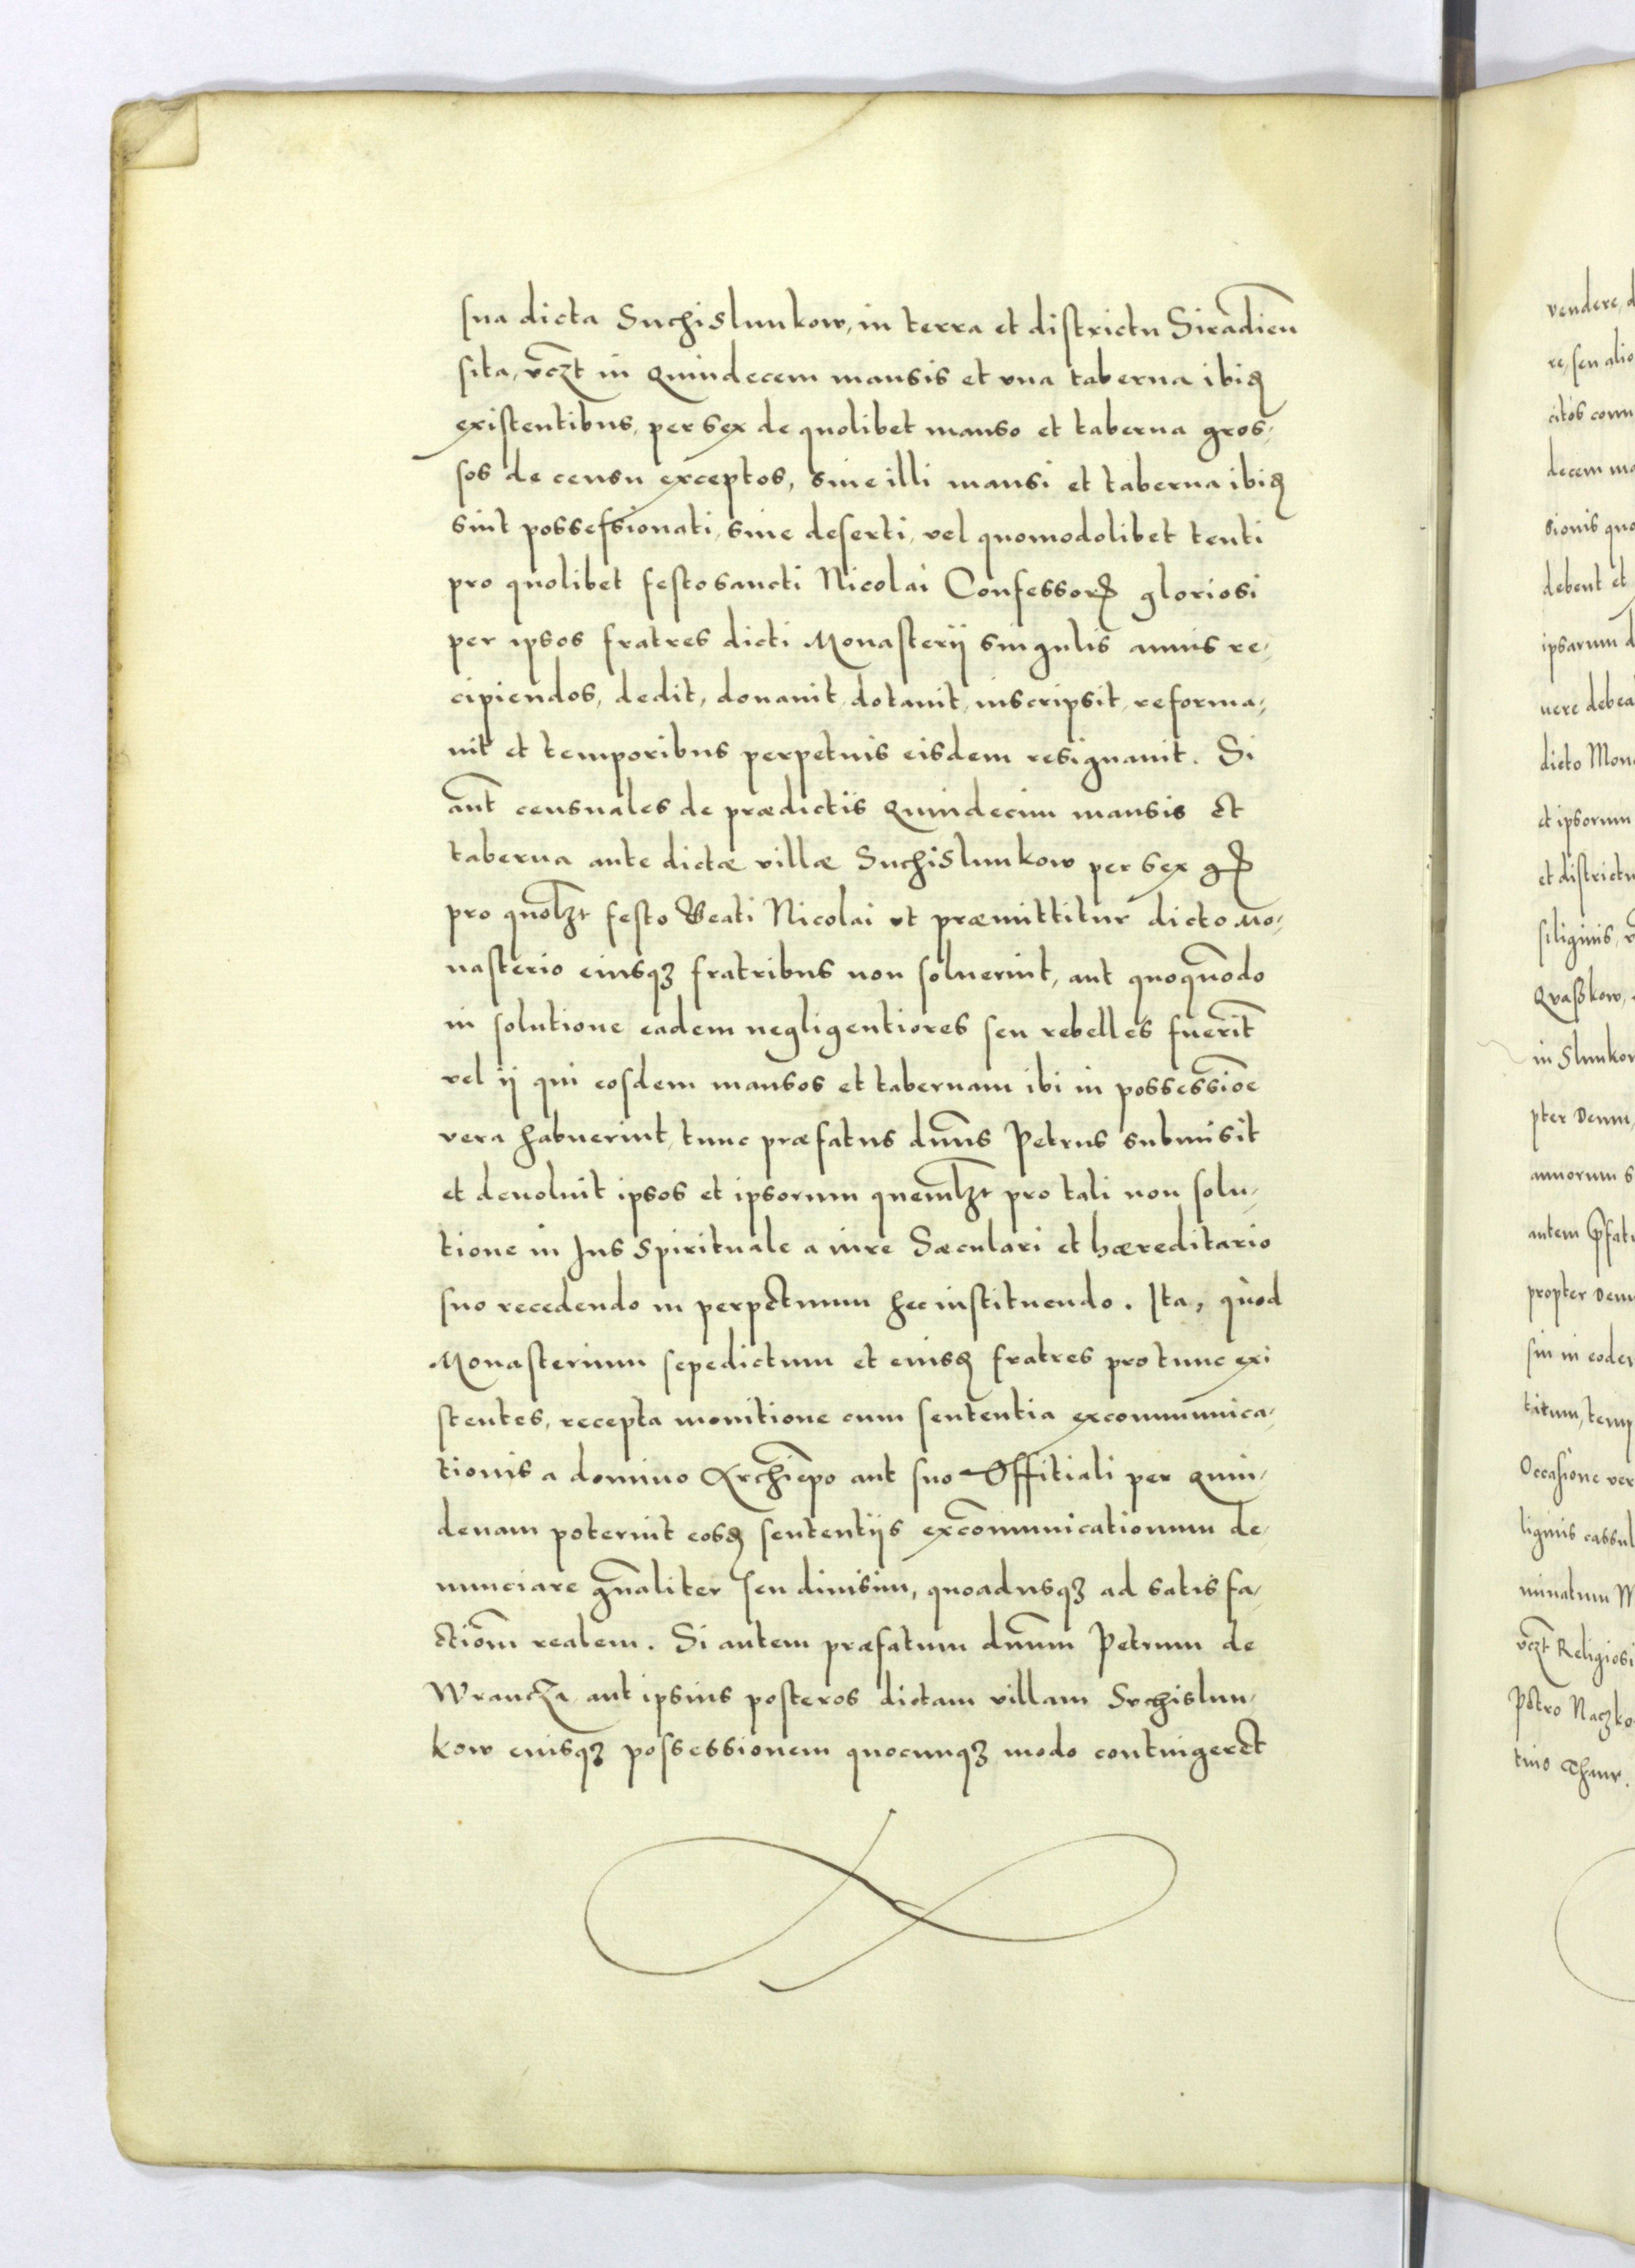 sua dicta Suchislunkow, in terra et districtu Siradien̄
sita, vcz̄t in Quindecem mansis et vna taberna ibiꝗ
existentibus, per sex de quolibet manso et taberna gros,
sos de censu exceptos, siue illi mansi et taberna ibiꝗ
sint possessionati, siue deserti, vel quomodolibet tenti
pro quolibet festo sancti Nicolai Confessorꝭ gloriosi
per ipsos fratres dicti Monasterij singulis annis re,
cipiendos, dedit, donauit, dotauit, inscripsit, reforma,
uit et temporibus perpetuis eisdem resignauit. Si
aut̄ censuales de prædictis Quindecim mansis et
taberna ante dictæ villæ Suchislunkow per sex gꝭ
pro quolꝫt festo Beati Nicolai vt præmittitur dicto Mo,
nasterio eiusqꝫ fratribus non soluerint, aut quoquōdo
in solutione eadem negligentiores seu rebelles fuerīt
vel ij qui eosdem mansos et tabernam ibi in possessiōe
vera habuerint, tunc præfatus dūns Petrus submisit
et deuoluit ipsos et ipsorum quemlꝫt pro tali non solu,
tione in Jus Spirituale a iure Sæculari et hæreditario
suo recedendo in perpetuum hec instituendo. Ita, quòd
Monasterium sepedictum et eiusꝗ fratres pro tunc exi
stentes, recepta monitione cum sententia excommunica,
tionis a domino Archiēpo aut suo Offitiali per Quin,
denam poterint eosꝗ sententijs excōmunicationum de,
nunciare gn̄aliter seu diuisim, quoadusqꝫ ad satisfa,
ctiōm realem. Si autem præfatum dūnm Petrum de
Wrancza, aut ipsius posteros dictam villam Suchislun,
kow eiusqꝫ possessionem quocunqꝫ modo contingeret
vendere, d
re, seu alio
citos com
decem ma
sionis quo
debent et
ipsarum d
uere debea
dicto Mon
et ipsorum
et districtu
siliginis,
Qvaßkow,
in Slunkow
pter Deum,
annorum s
autem p̄fat
propter Deu
sin in eodem
titum, temp
Occasione ver
liginis cassul
minatum M
vcz̄t Religiosi
Petro Naczko
tino Thaur.